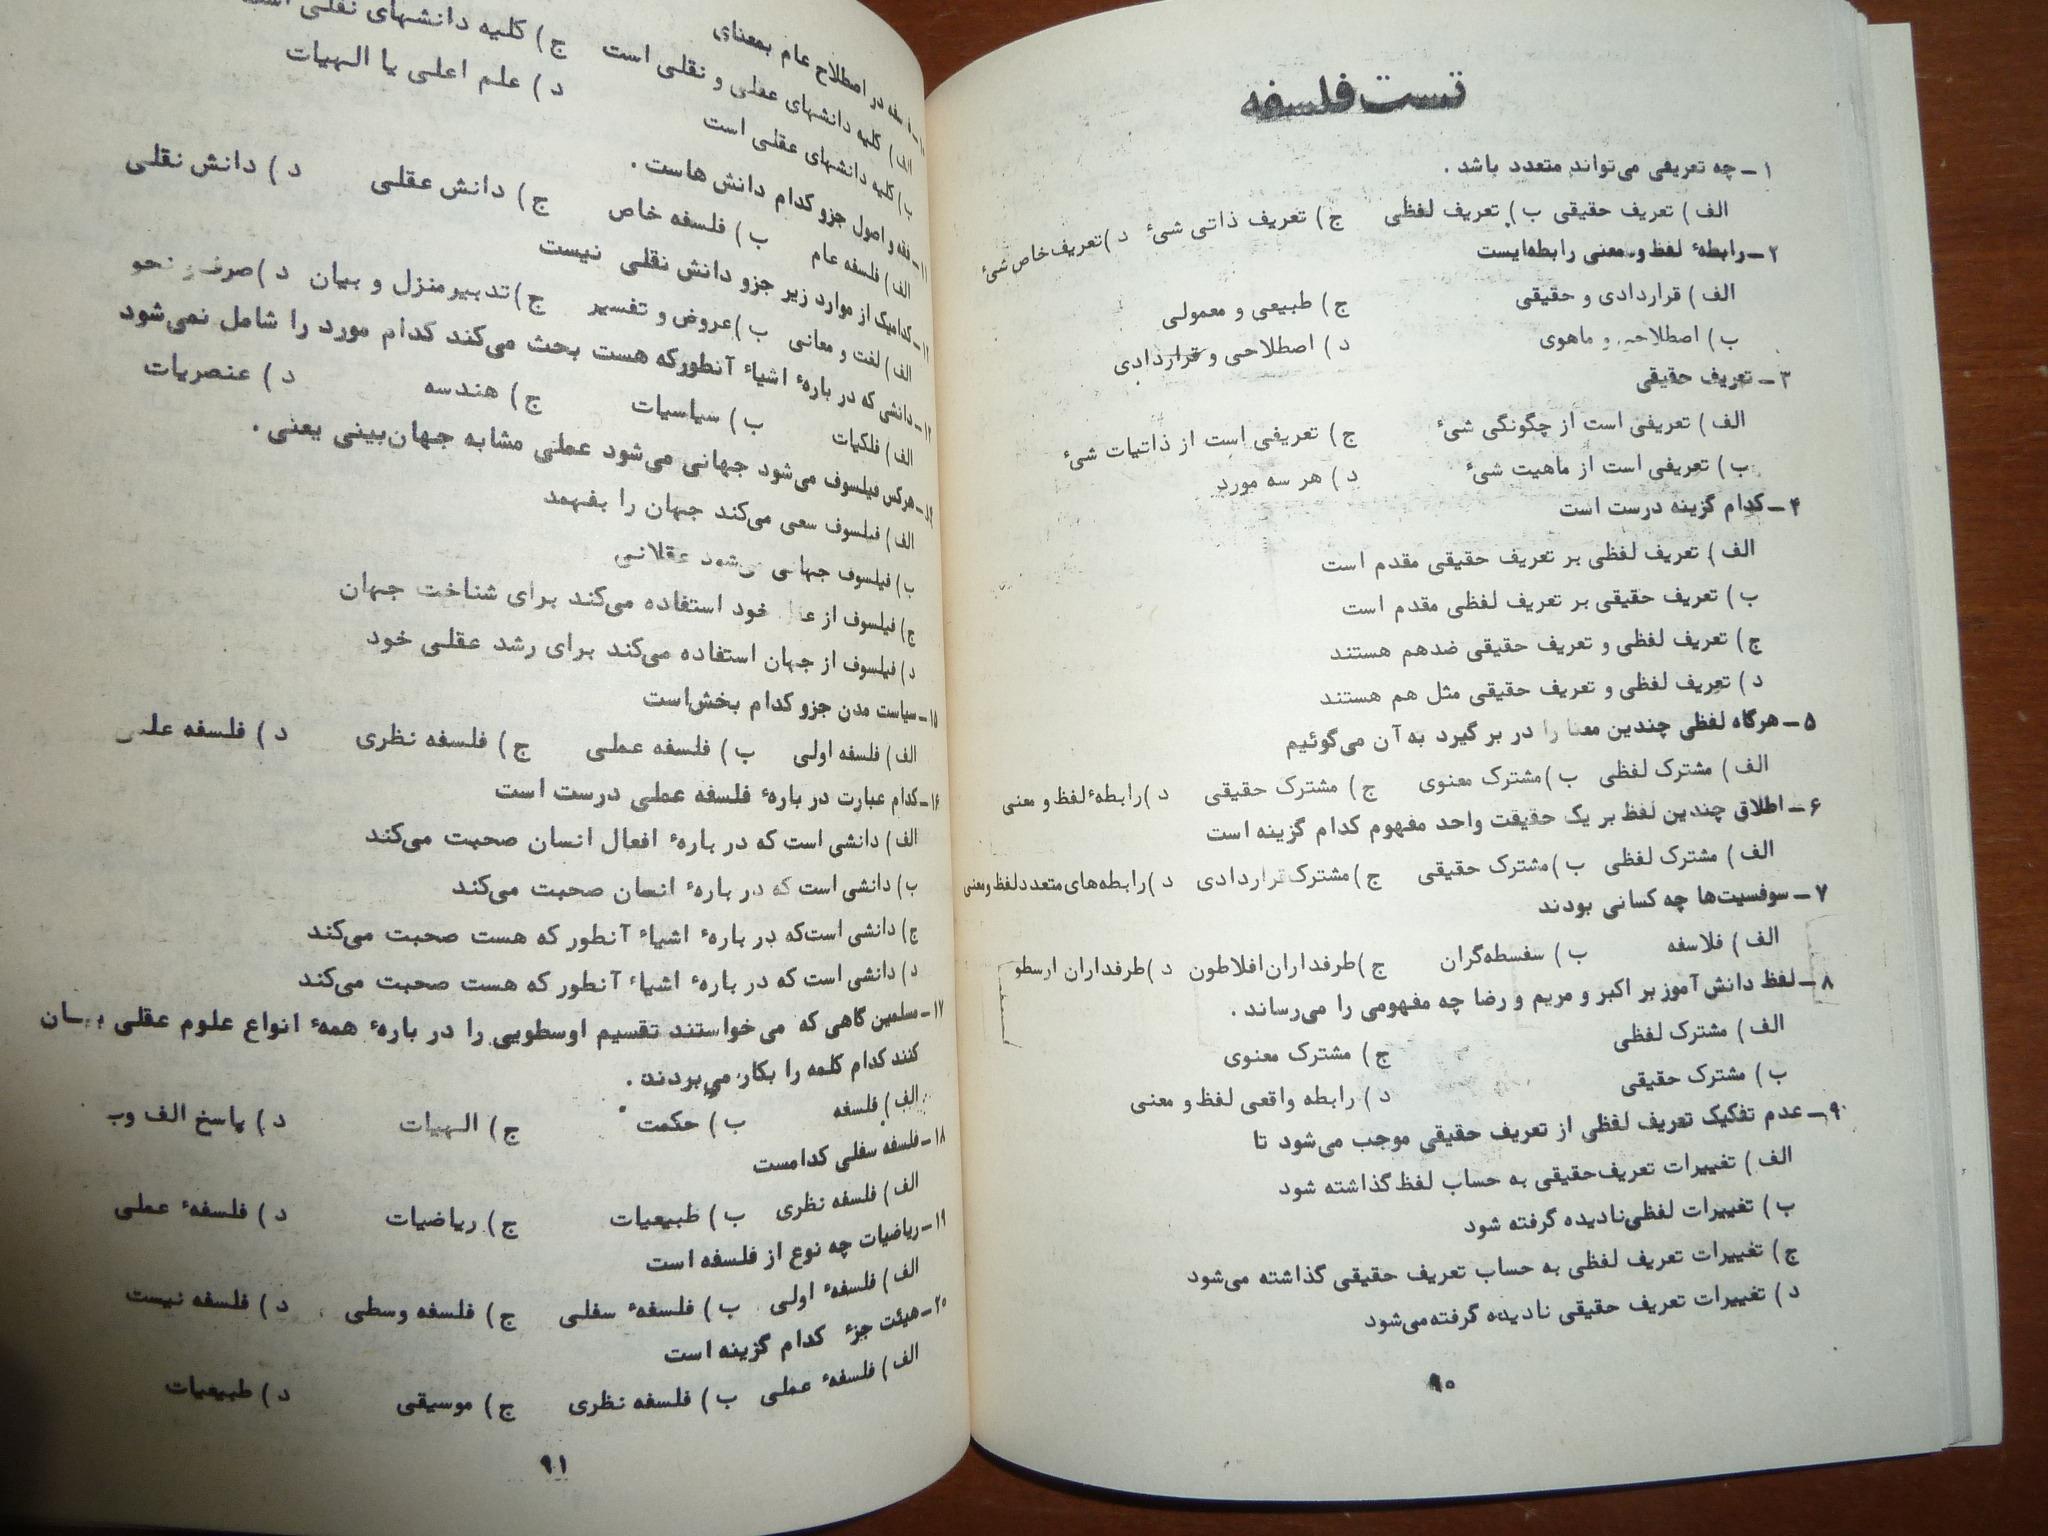 تست فلسفه
۱ـ چه تعریفی می‌تواند متعدد باشد .
الف) تعریف حقیقی ب) تعریف لفظی ج) تعریف ذاتی شیء د) تعریف خاص شیء
۲ـ رابطهٔ لفظ و معنی رابطه‌ایست
الف) قراردادی و حقیقی ج) طبیعی و معمولی
ب) اصطلاحی و ماهوی د) اصطلاحی و قراردادی
۳ـ تعریف حقیقی
الف) تعریفی است از چگونگی شیء ج) تعریفی است از ذاتیات شیء
ب) تعریفی است از ماهیت شیء د) هر سه مورد
۴ـ کدام گزینه درست است
الف) تعریف لفظی بر تعریف حقیقی مقدم است
ب) تعریف حقیقی بر تعریف لفظی مقدم است
ج) تعریف لفظی و تعریف حقیقی ضدهم هستند
د) تعریف لفظی و تعریف حقیقی مثل هم هستند
۵ـ هرگاه لفظی چندین معنا را در بر گیرد به آن می‌گوئیم
الف) مشترک لفظی ب) مشترک معنوی ج) مشترک حقیقی د) رابطهٔ لفظ و معنی
۶ـ اطلاق چندین لفظ بر یک حقیقت واحد مفهوم کدام گزینه است
الف) مشترک لفظی ب) مشترک حقیقی ج) مشترک قراردادی د) رابطه‌های متعدد لفظ و معنی
۷ـ سوفسیت‌ها چه کسانی بودند
الف) فلاسفه ب) سفسطه‌گران ج) طرفداران افلاطون د) طرفداران ارسطو
۸ـ لفظ دانش آموز بر اکبر و مریم و رضا چه مفهومی را می‌رساند .
الف) مشترک لفظی ج) مشترک معنوی
ب) مشترک حقیقی د) رابطه واقعی لفظ و معنی
۹ـ عدم تفکیک تعریف لفظی از تعریف حقیقی موجب می‌شود تا
الف) تغییرات تعریف حقیقی به حساب لفظ گذاشته شود
ب) تغییرات لفظی نادیده گرفته شود
ج) تغییرات تعریف لفظی به حساب تعریف حقیقی گذاشته می‌شود
د) تغییرات تعریف حقیقی نادیده گرفته می‌شود
۹۰
در اصطلاح عام بمعنای
الف) کلیه دانشهای عقلی و نقلی است ج) کلیه دانشهای نقلی است
ب) کلیه دانشهای عقلی است د) علم اعلی یا الهیات
۱۱ـ فقه و اصول جزو کدام دانش هاست .
الف) فلسفه عام ب) فلسفه خاص ج) دانش عقلی د) دانش نقلی
کدامیک از موارد زیر جزو دانش نقلی نیست
الف) لغت و معانی ب) عروض و تفسیر ج) تدبیر منزل و بیان د) صرف و نحو
دانشی که در بارهٔ اشیاء آنطور که هست بحث می‌کند کدام مورد را شامل نمی‌شود
الف) فلکیات ب) سیاسیات ج) هندسه د) عنصریات
هرکس فیلسوف می‌شود جهانی می‌شود عملی مشابه جهان‌بینی یعنی .
الف) فیلسوف سعی می‌کند جهان را بفهمد
ب) فیلسوف جهانی می‌شود عقلانی
ج) فیلسوف از خود استفاده می‌کند برای شناخت جهان
د) فیلسوف از جهان استفاده می‌کند برای رشد عقلی خود
۱۵ـ سیاست مدن جزو کدام بخش است
الف) فلسفه اولی ب) فلسفه عملی ج) فلسفه نظری د) فلسفه
۱۶ـ کدام عبارت در بارهٔ فلسفه عملی درست است
الف) دانشی است که در بارهٔ افعال انسان صحبت می‌کند
ب) دانشی است که در بارهٔ انسان صحبت می‌کند
ج) دانشی است‌که در بارهٔ اشیاء آنطور که هست صحبت می‌کند
د) دانشی است که در بارهٔ اشیاء آنطور که هست صحبت می‌کند
۱۷ـ مسلمین گاهی که می‌خواستند تقسیم اوسطویی را در بارهٔ همهٔ انواع علوم عقلی بیان
کنند کدام کلمه را بکار می‌بردند .
الف) فلسفه ب) حکمت ج) الهیات د) پاسخ الف و ب
۱۸ـ فلسفه سفلی کدامست
الف) فلسفه نظری ب) طبیعیات ج) ریاضیات د) فلسفهٔ عملی
۱۹ـ ریاضیات چه نوع از فلسفه است
الف) فلسفهٔ اولی ب) فلسفهٔ سفلی ج) فلسفه وسطی د) فلسفه نیست
۲۰ـ هیئت جزء کدام گزینه است
الف) فلسفهٔ عملی ب) فلسفه نظری ج) موسیقی د) طبیعیات
۹۱